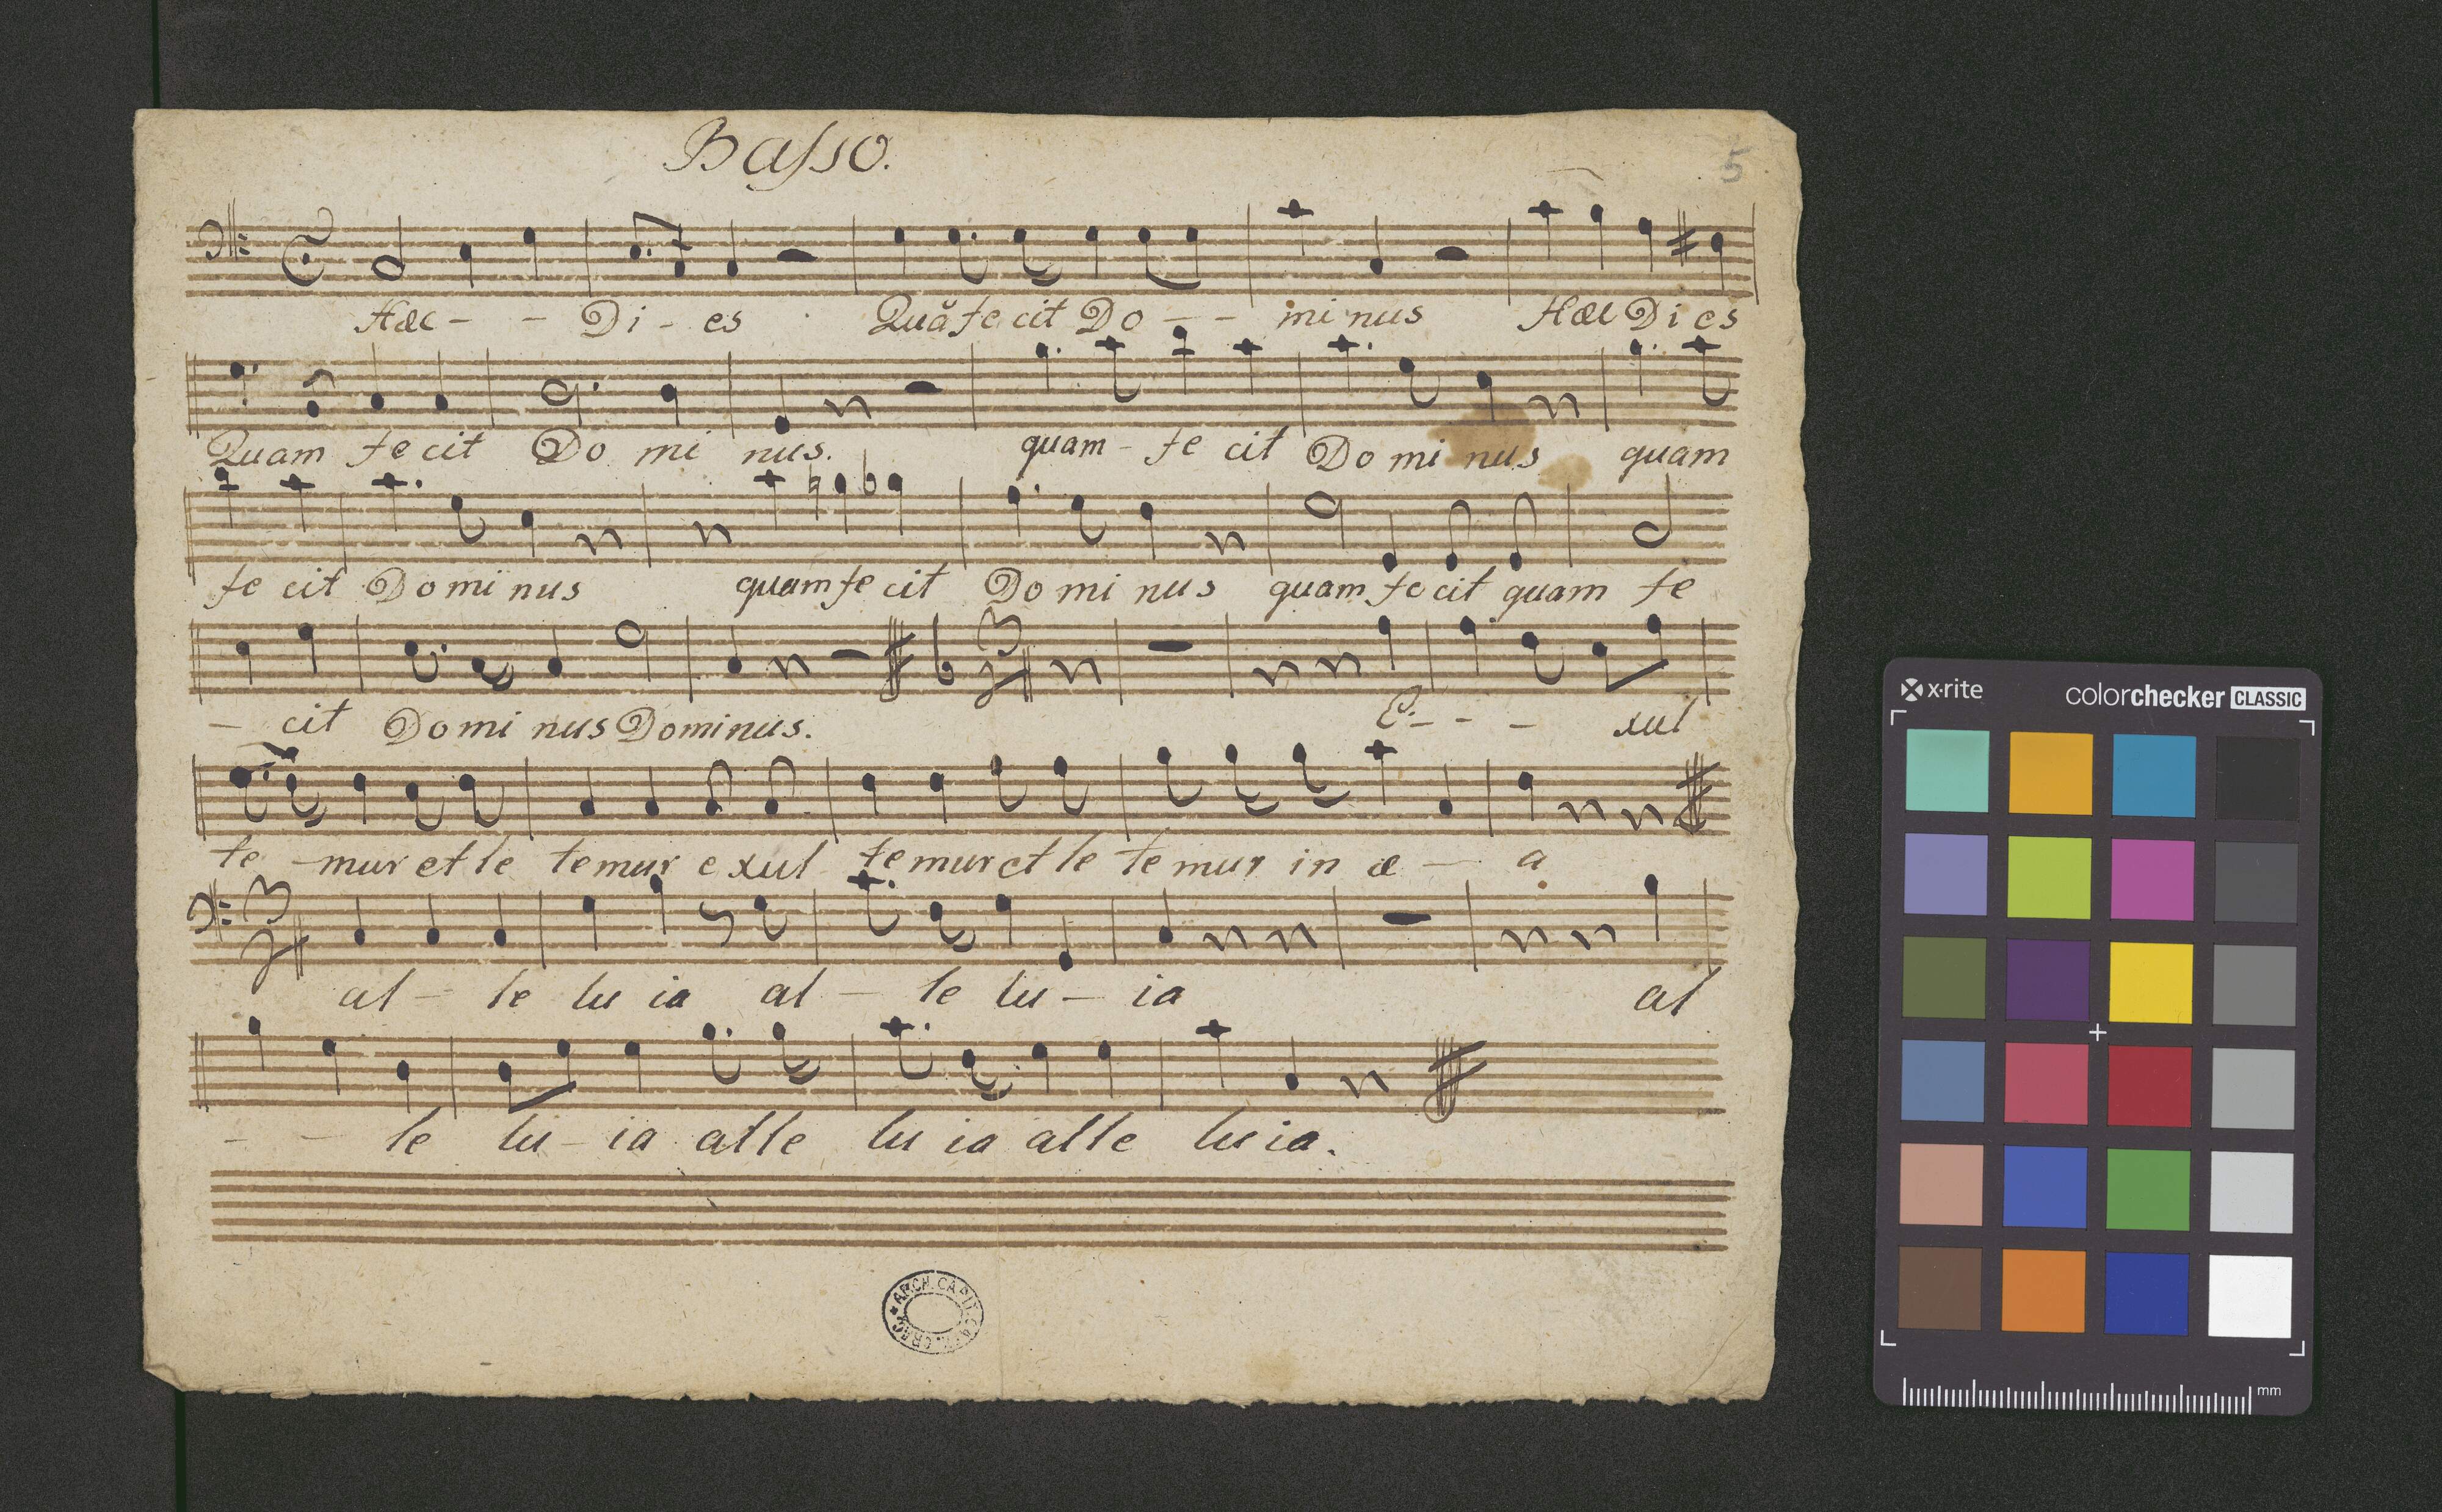 Basso.
5
Hæc - - Di - es Quā fe cit Do - - mi nus Hæc Di es
Quam fe cit Do mi nus. quam - fe cit Do mi nus quam
fe cit Do mi nus quam fe cit Do mi nus quam fe cit quam fe
- cit Do mi nus Dominus. E - - - xul
te - mur et le te mur e xul te mur et le te mur in æ - a
al - le lu ia al - le lu - ia al
- - le lu - ia alle lu ia alle lu ia.
ARCH. CAPIT. CRAC
x·rite colorchecker CLASSIC
mm